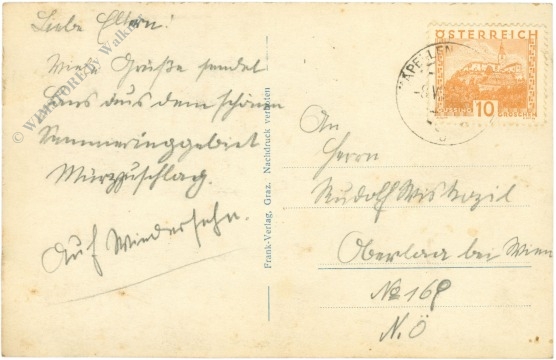 Liebe Eltern!
Viele Grüße sendet
Hans aus dem schönen
Semmeringgebiet
Mürzzuschlag.
Auf Wiedersehn.
© WIMSTORE by Walknet
Frank-Verlag, Graz. Nachdruck verboten
ÖSTERREICH
KAPELLEN
GÜSSING 10 GROSCHEN
An
Herrn
Rudolf
Oberlaa bei Wien
No 169
N.Ö